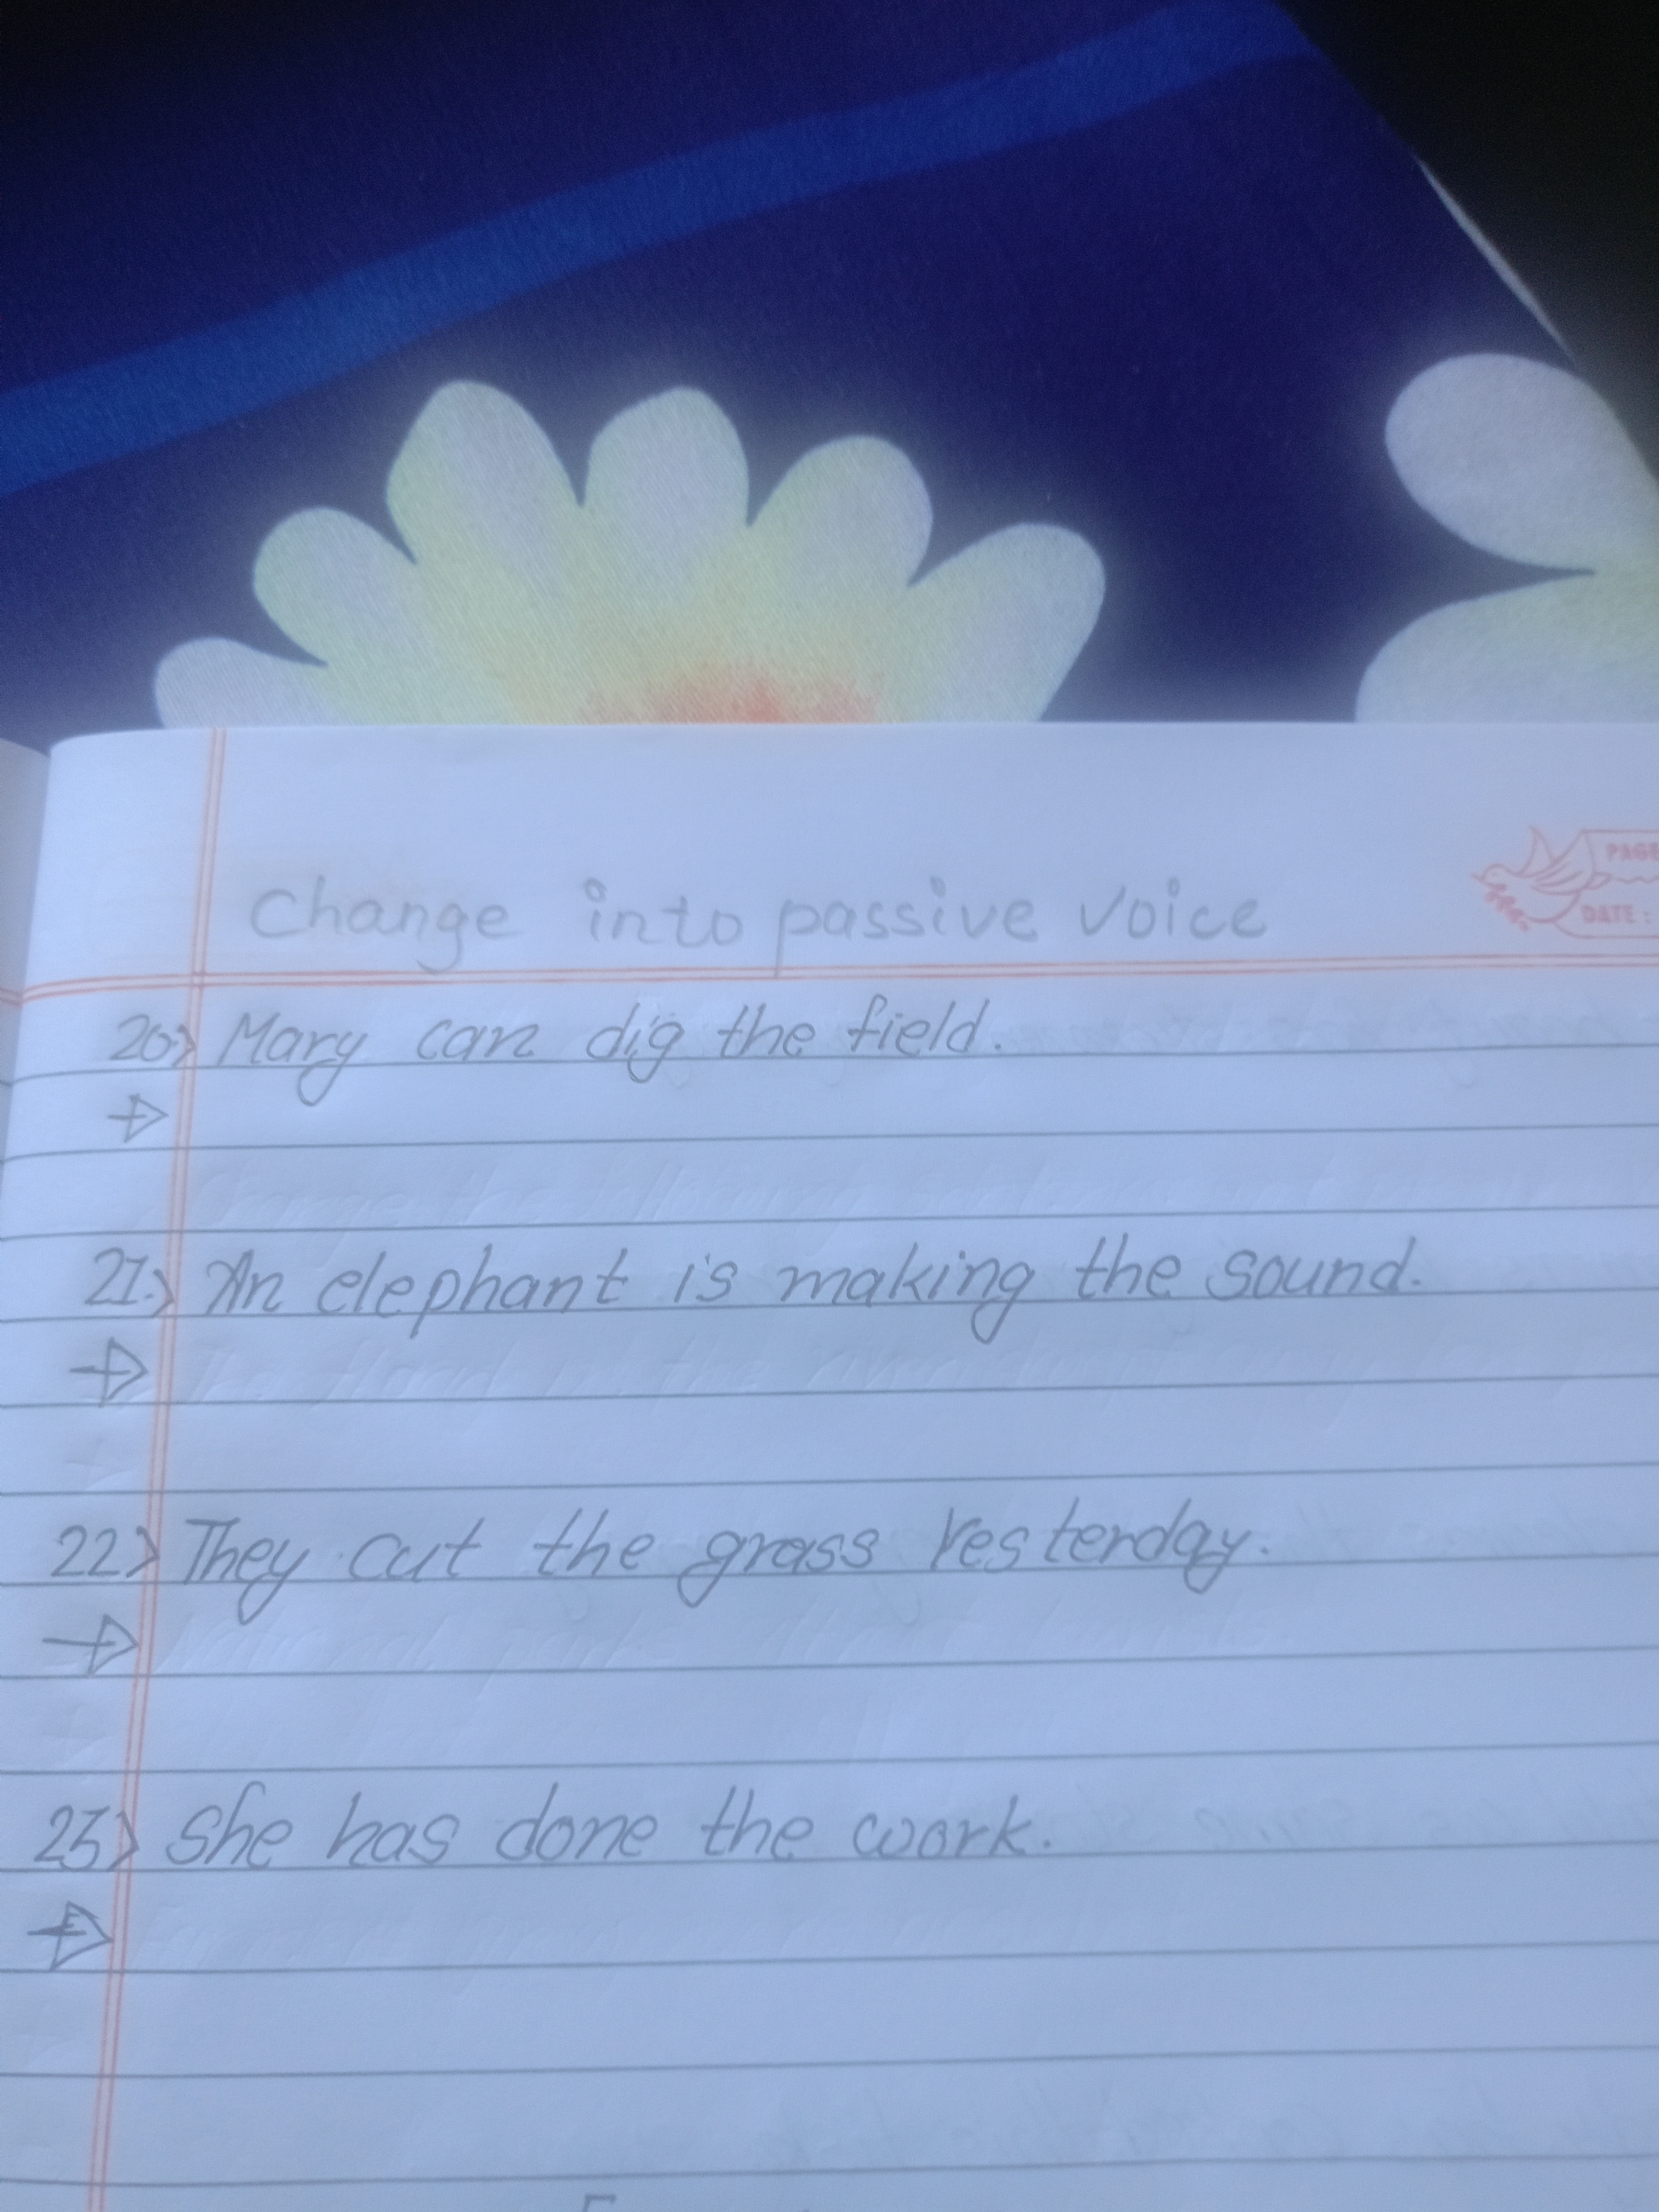 PAGE
DATE:
Change into passive voice
20> Mary can dig the field.
21.> An elephant is making the sound.
22> They cut the grass Yesterday.
23> She has done the work.